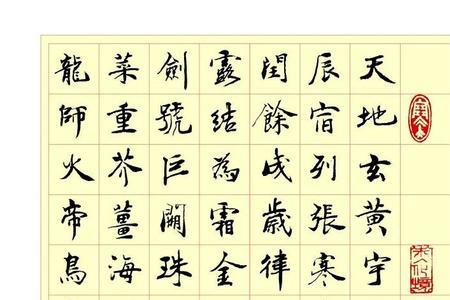 天地玄黃宇
辰宿列張寒
閏餘成歲律
露結為霜金
劍號巨闕珠
菜重芥薑海
龍師火帝鳥